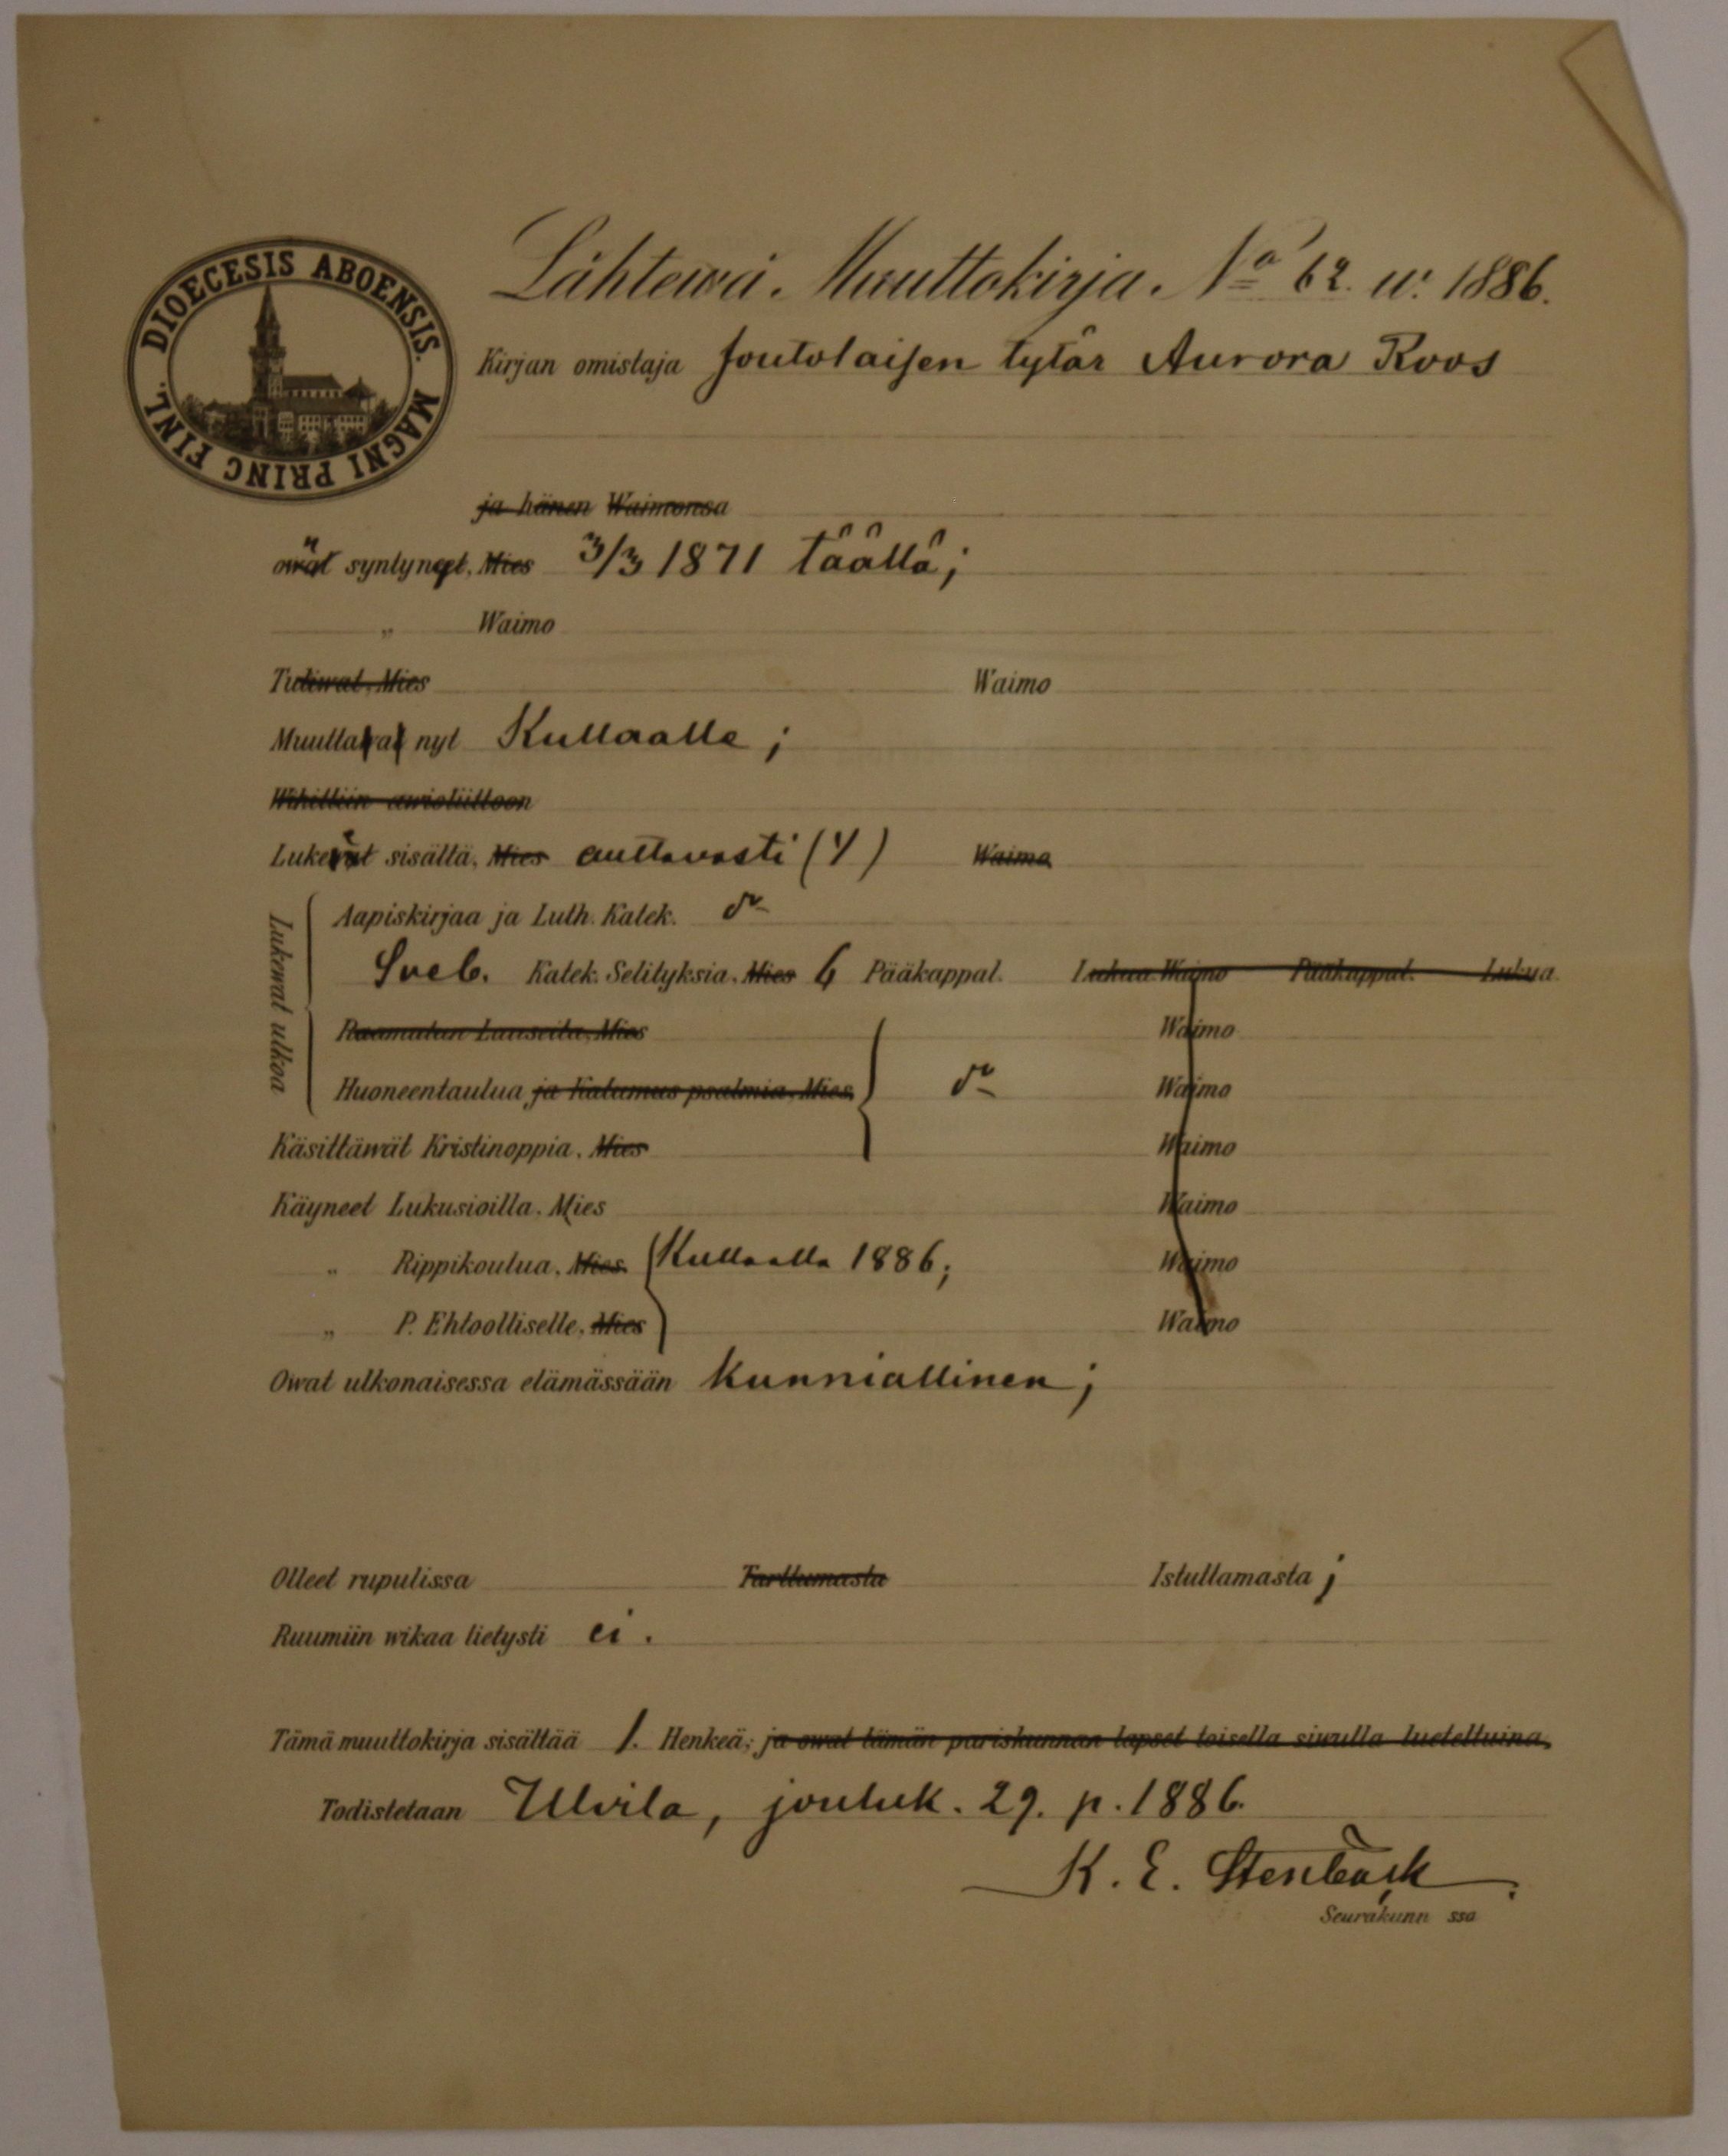 DIOECESIS ABOENSIS. MAGNI PRINC FINL.
Lähtewä. Muuttokirja. No 62. w. 1886.
Kirjan omistaja Joutolaisen tytär Aurora Roos
ja hänen Waimonsa
owat syntynyt, Mies 3/3 1871 täällä;
„ Waimo
Tuliwat, Mies Waimo
Muuttawat nyt Kullaalle;
Wihittiin awioliittoon
Lukewat sisältä, Mies auttavasti (4) Waimo
Lukewat ulkoa
Aapiskirjaa ja Luth. Katek. do
Sveb. Katek. Selityksiä, Mies 6 Pääkappal. Lukua. Waimo Pääkappal. Lukua.
Raamatun Lauseita, Mies Waimo
Huoneentaulua ja Katumus psalmia, Mies do Waimo
Käsittäwät Kristinoppia, Mies Waimo
Käyneet Lukusioilla, Mies Waimo
„ Rippikoulua, Mies Kullaalla 1886; Waimo
„ P. Ehtoolliselle, Mies Waimo
Owat ulkonaisessa elämässään kunniallinen;
Olleet rupulissa Tarttumasta Istuttamasta;
Ruumiin wikaa tietysti ei.
Tämä muuttokirja sisältää 1. Henkeä; ja owat tämän pariskunnan lapset toisella siwulla lueteltuina.
Todistetaan Ulvila, jouluk. 29. p. 1886.
K. E. Stenbäck.
Seurakunn ssa